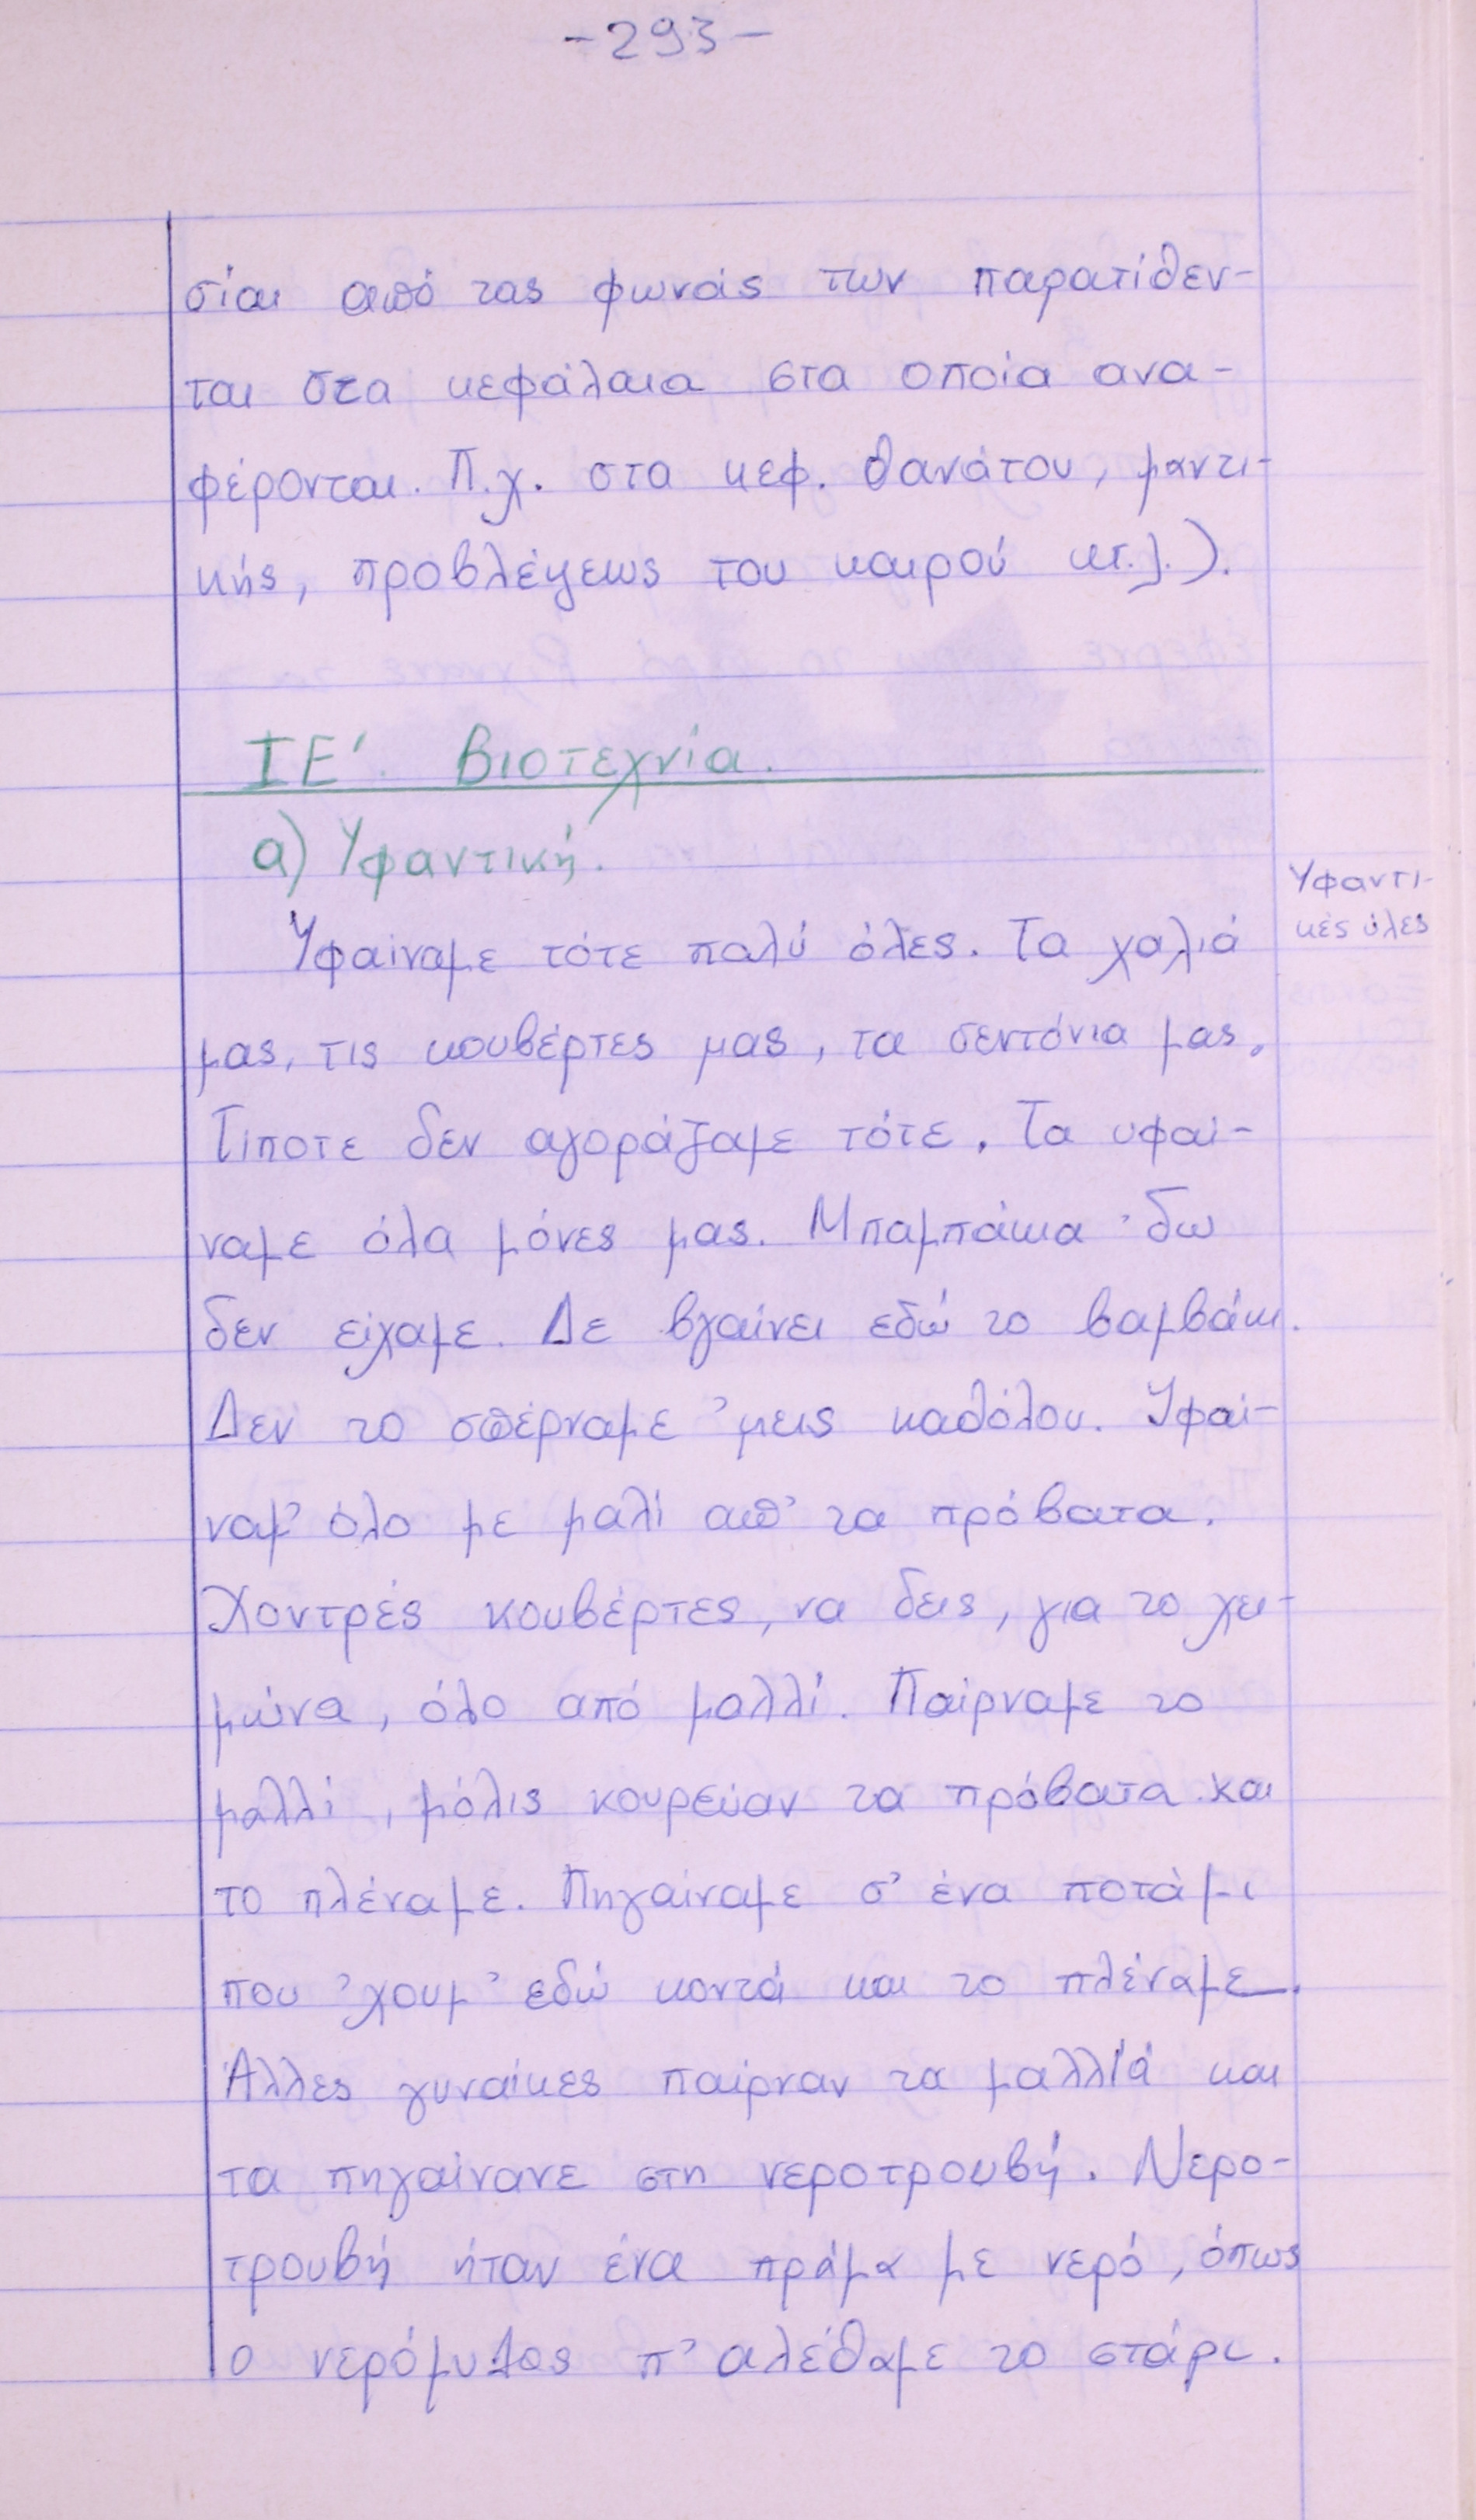 -293-
σίαι από τας φωνάς των παρατίθεν-
ται στα κεφάλαια στα οποία ανα-
φέρονται. Π.χ. στα κεφ. θανάτου, μαντι-
κής, προβλέψεως του καιρού κτ.λ.).
ΙΕ'. Βιοτεχνία.
α) Υφαντική.
Υφαντι-
κές ύλες
Υφαίναμε τότε πολύ όλες. Τα χαλιά
μας, τις κουβέρτες μας, τα σεντόνια μας.
Τίποτε δεν αγοράζαμε τότε. Τα υφαί-
ναμε όλα μόνες μας. Μπαμπάκια 'δω
δεν είχαμε. Δε βγαίνει εδώ το βαμβάκι.
Δεν το σπέρναμε 'μεις καθόλου. Υφαί-
ναμ' όλο με μαλί απ' τα πρόβατα.
Χοντρές κουβέρτες, να δεις, για το χει-
μώνα, όλο από μαλλί. Παίρναμε το
μαλλί, μόλις κουρεύαν τα πρόβατα και
το πλέναμε. Πηγαίναμε σ' ένα ποτάμι
που 'χουμ' εδώ κοντά και το πλέναμε.
Άλλες γυναίκες παίρναν τα μαλλιά και
τα πηγαίνανε στη νεροτρουβή. Νερο-
τρουβή ήταν ένα πράμα με νερό, όπως
ο νερόμυλος π' αλέθαμε το στάρι.